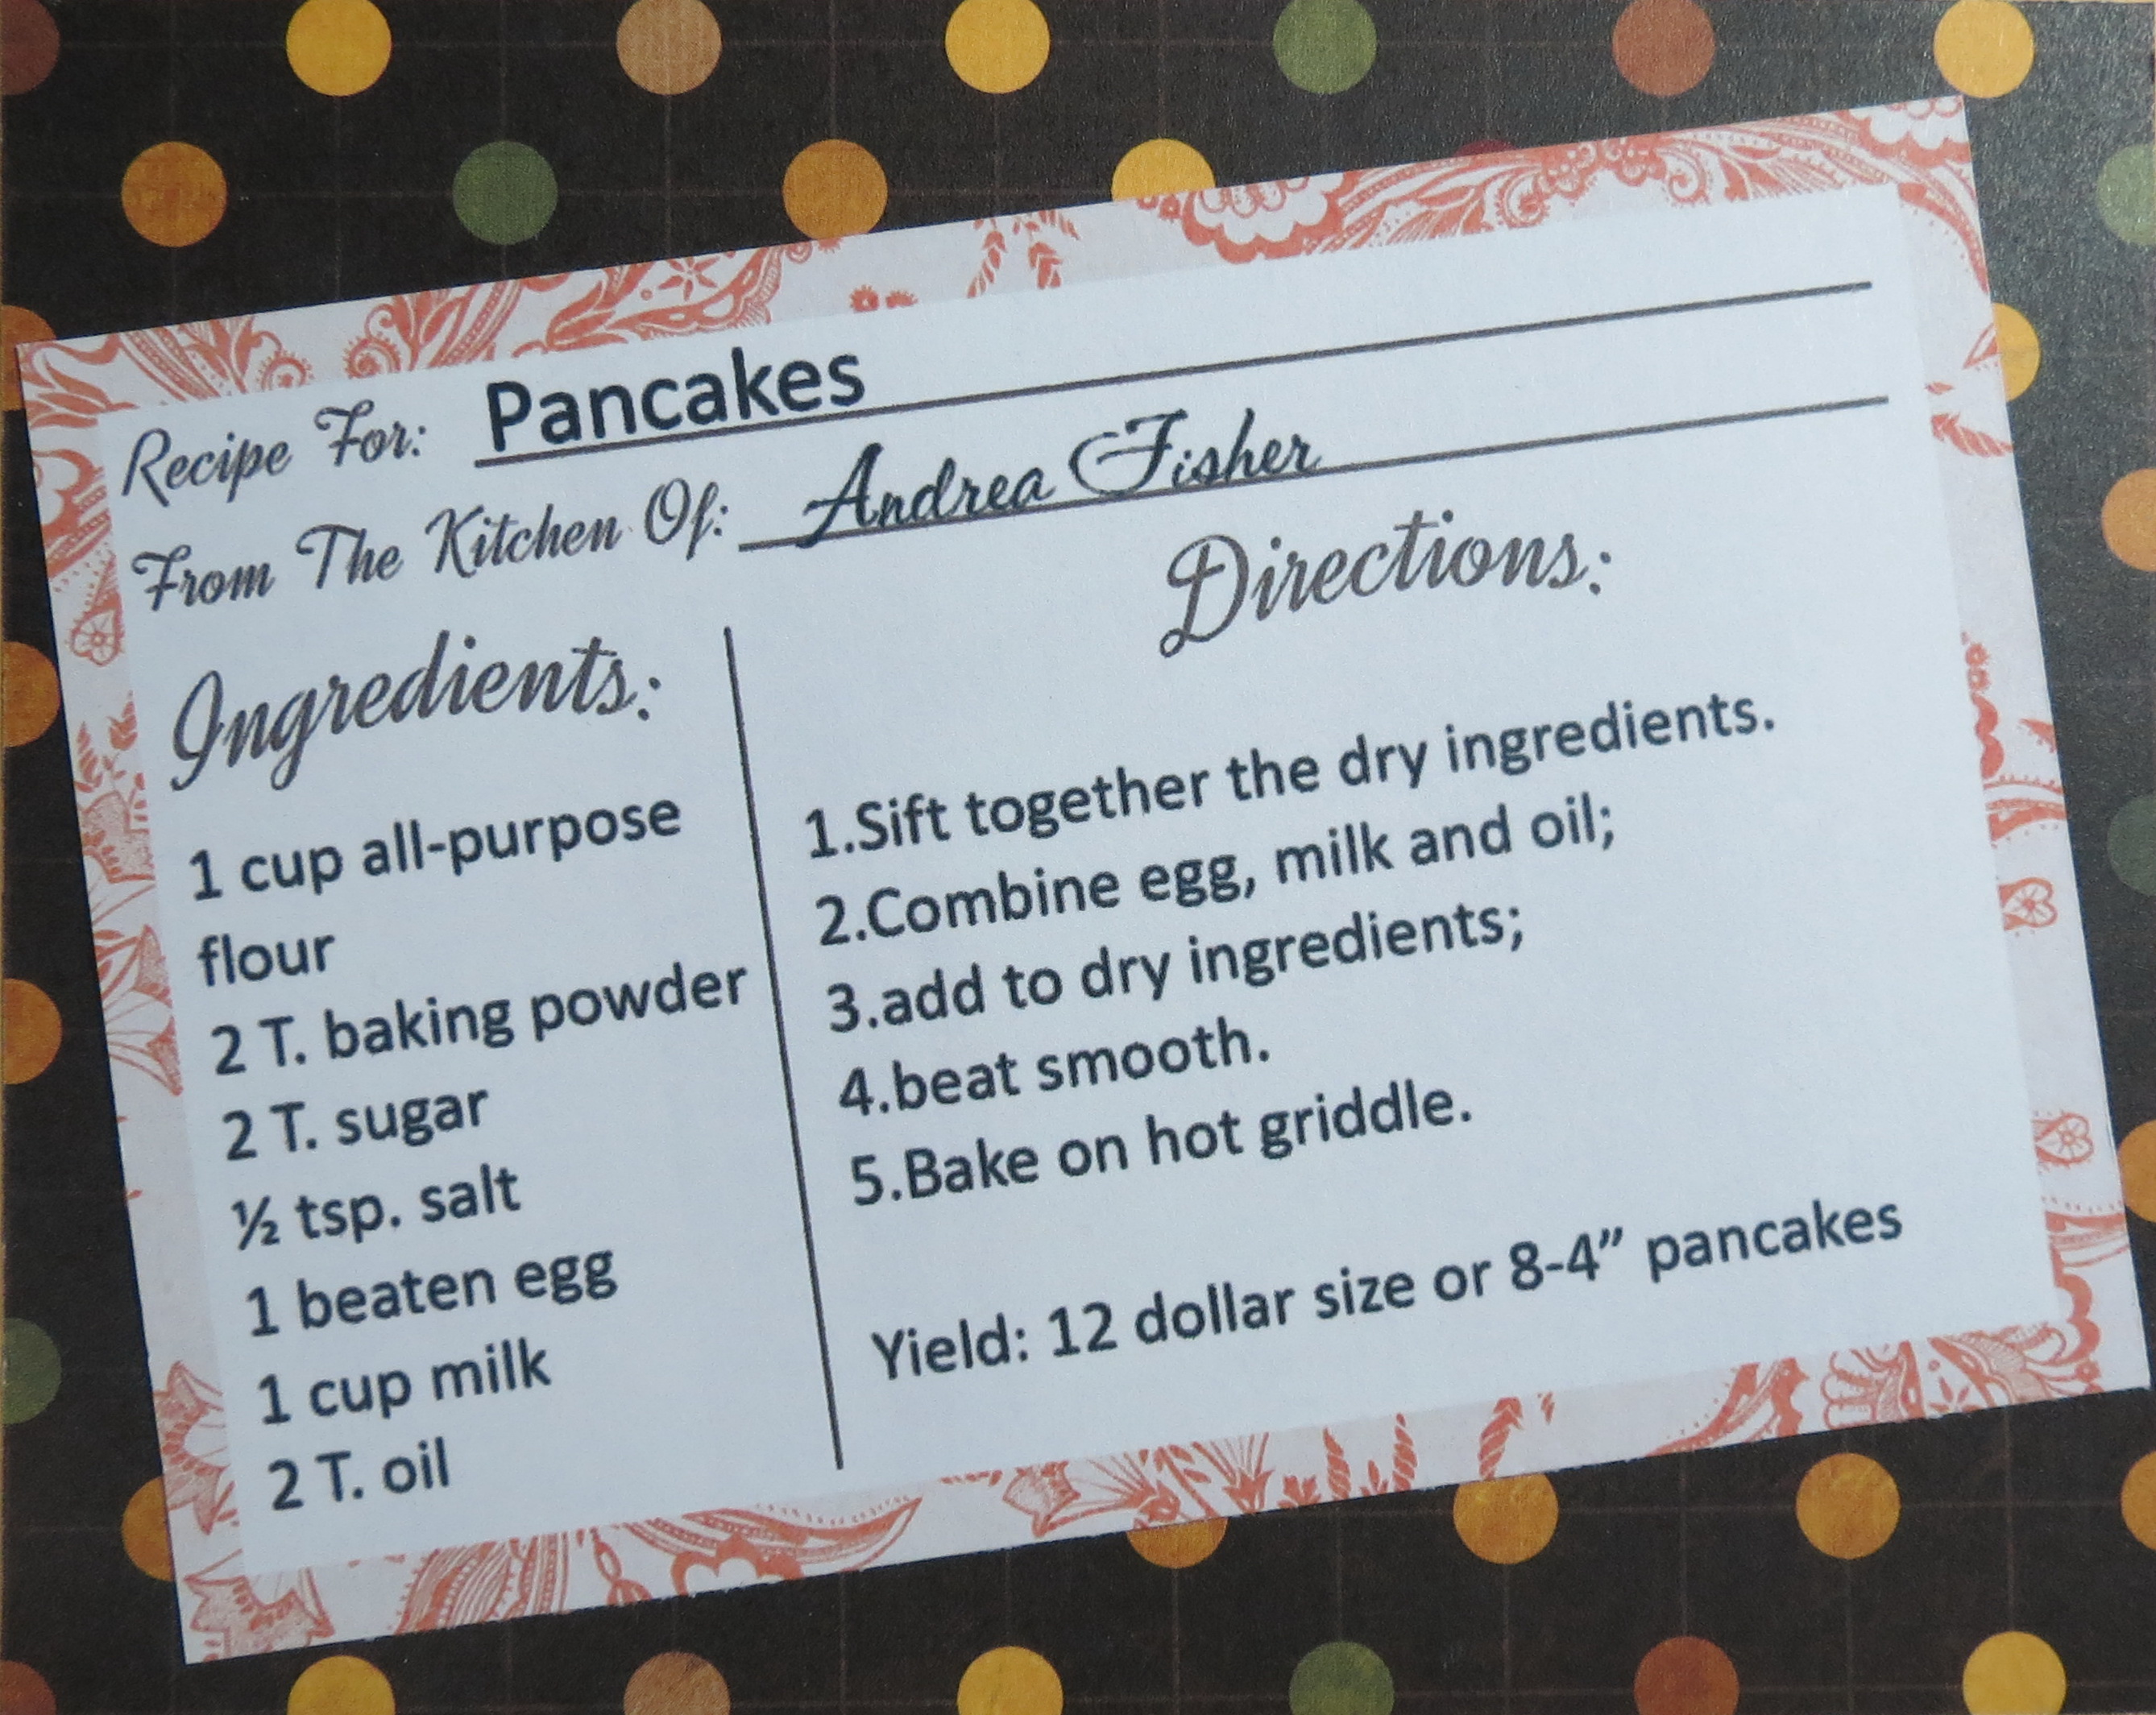 Recipe For: Pancakes
From The Kitchen Of: Andrea Fisher
Ingredients:
1 cup all-purpose
flour
2 T. baking powder
2 T. sugar
½ tsp. salt
1 beaten egg
1 cup milk
2 T. oil
Directions:
1.Sift together the dry ingredients.
2.Combine egg, milk and oil;
3.add to dry ingredients;
4.beat smooth.
5.Bake on hot griddle.
Yield: 12 dollar size or 8-4” pancakes